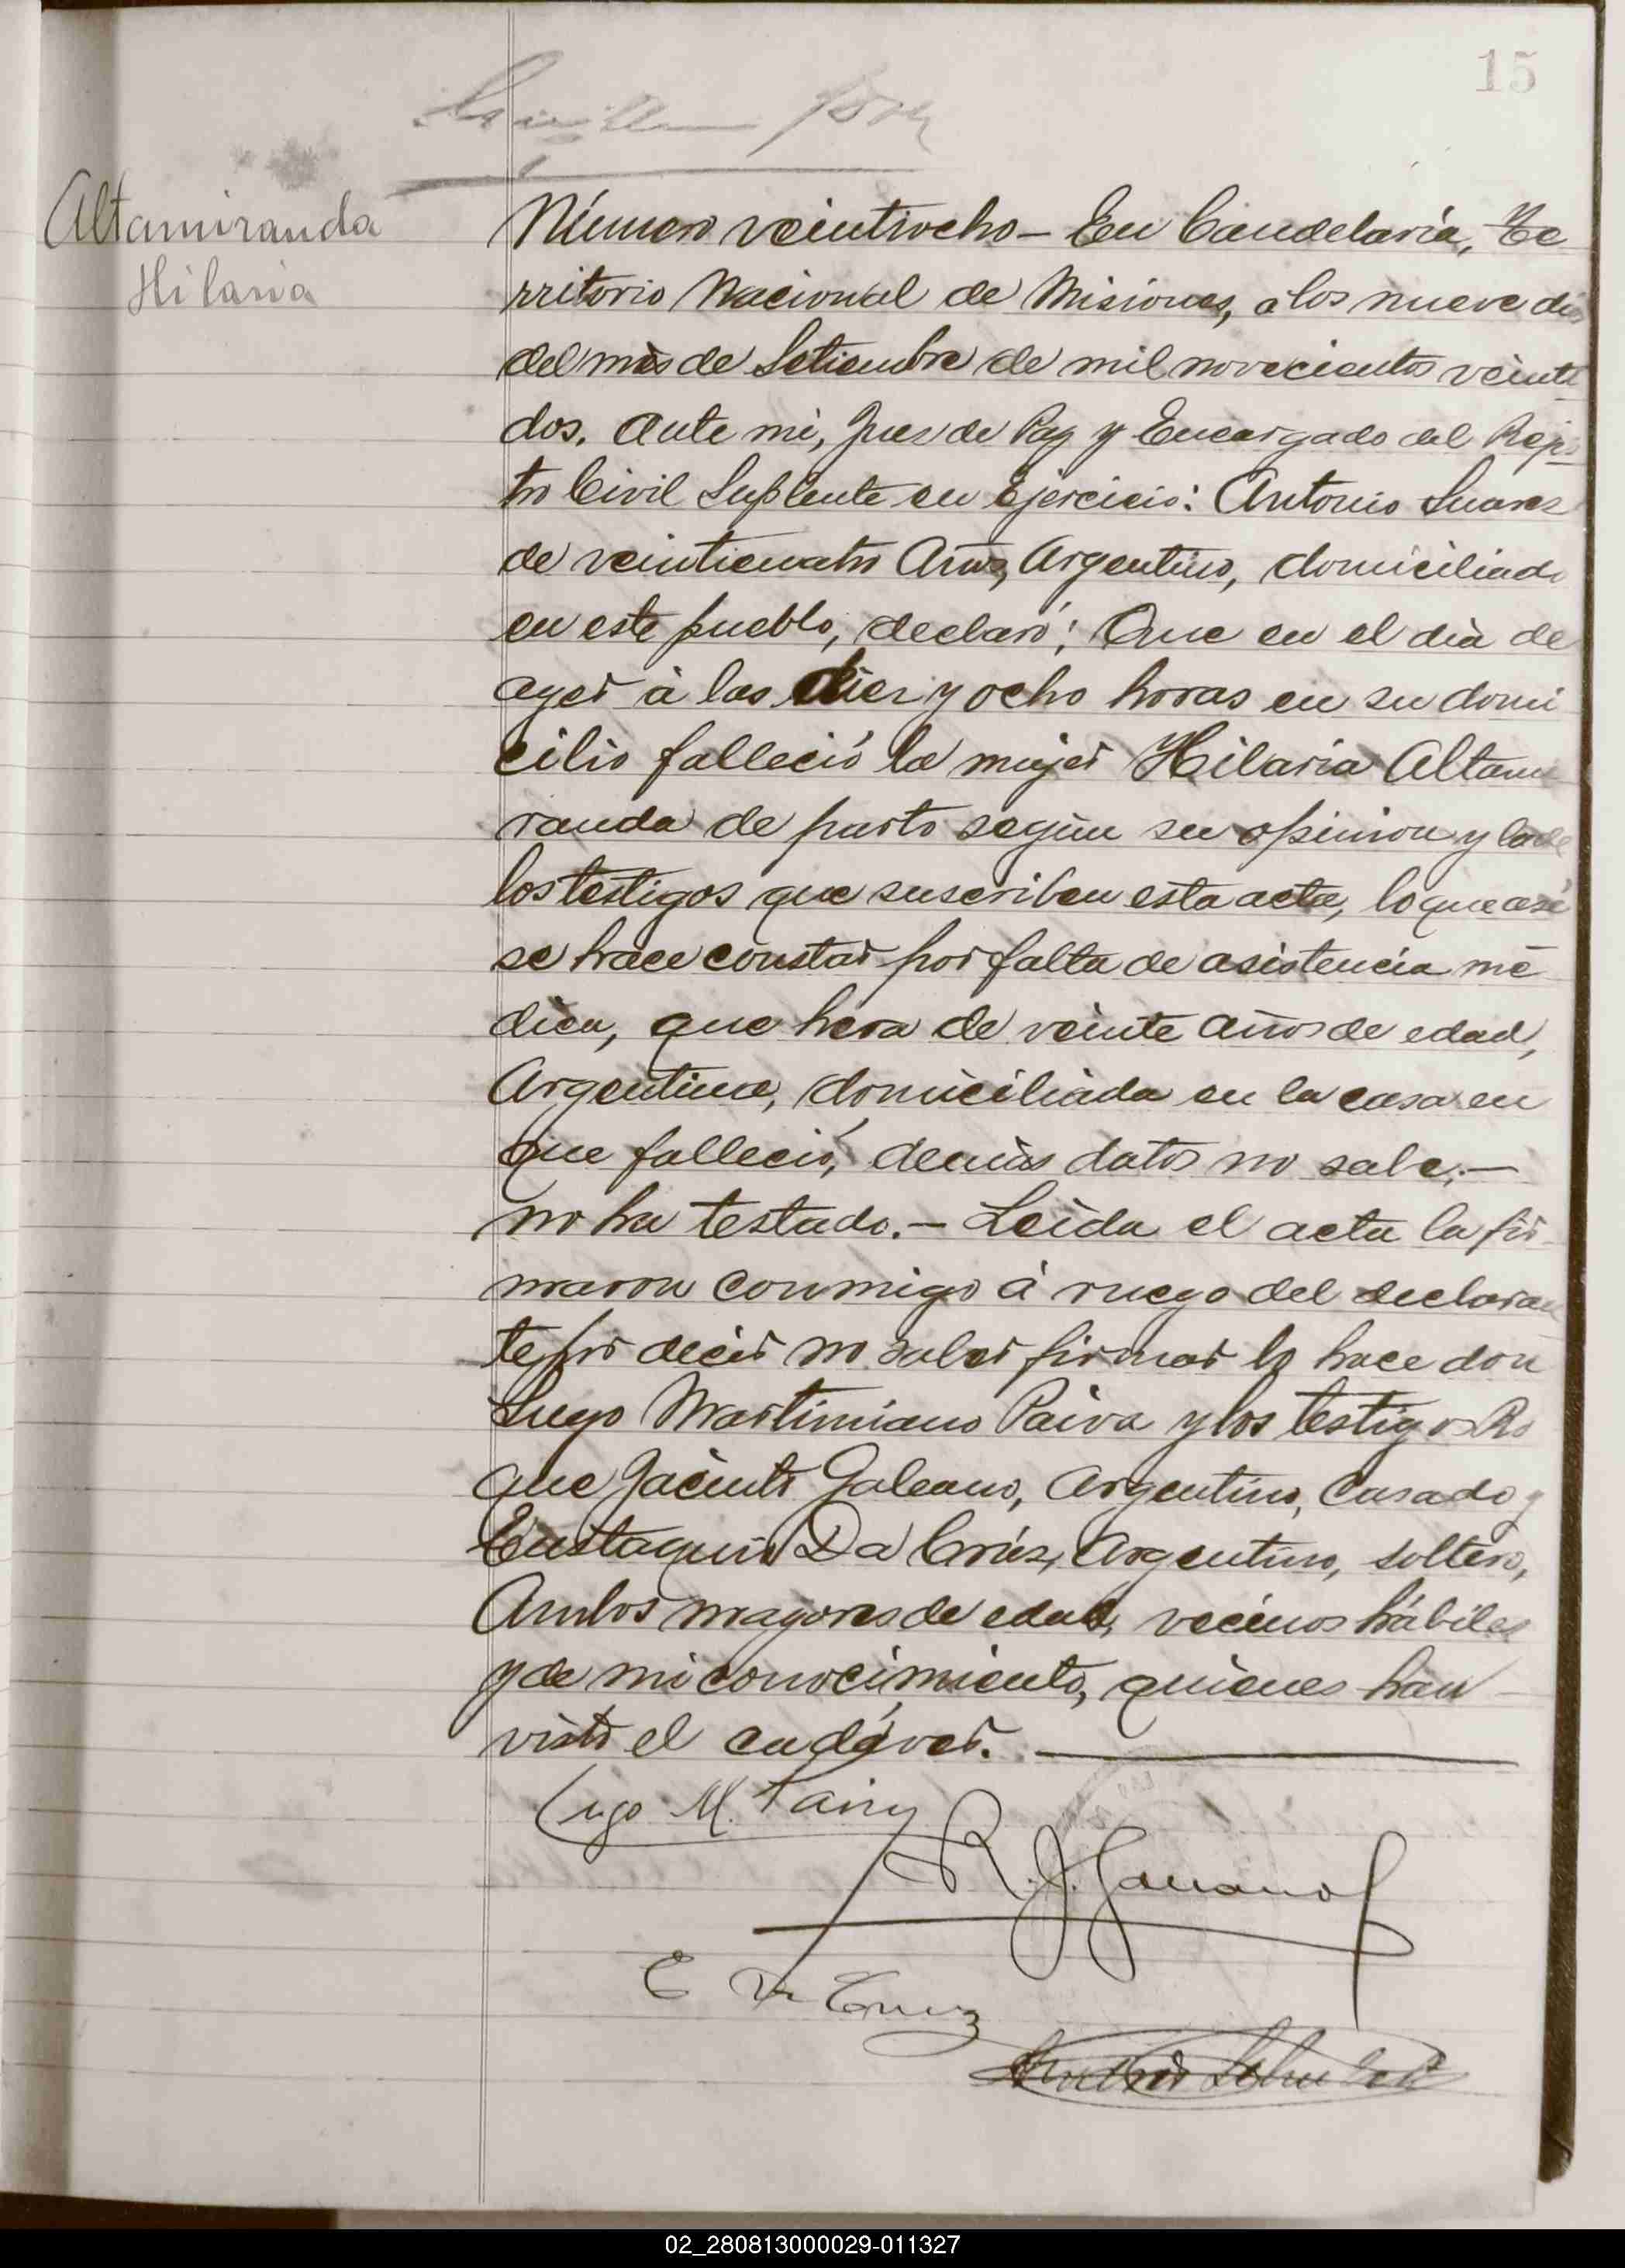 15
Altamiranda
Hilaria
Número veintiocho - En Candelaria, Te
rritorio Nacional de Misiones, a los nueve dias
del mes de Setiembre de mil novecientos veinti
dos. Ante mi, Juez de Paz y Encargado del Regis
tro Civil Suplente en Ejercicio: Antonio Suarez
de veinticuatro Años, Argentino, domiciliado
en este pueblo, declaró: Que en el dia de
ayer à las diez y ocho horas en su domi
cilio falleció la mujer Hilaria Altami
randa de parto segùn su opinion y la de
los testigos que suscriben esta acta, lo que asi
se hace constar por falta de asistencia mé
dica, que hera de veinte años de edad,
Argentina, domiciliada en la casa en
que falleció, demàs datos no sabe. -
no ha testado. - Leida el acta la fir
maron conmigo á ruego del declaran
te por decir no saber firmar lo hace don
Lugo Martimiano Paiva y los testigos Ro
que Jacinto Galeano, Argentino, Casado y
Eustaquio Da Crúz, Argentino, soltero,
Ambos mayores de edad, vecinos hábiles
y de mi conocimiento, quienes han
visto el cadáver.
Lugo M. Paiva
R. J. Galeano
E Da Cruz
02_280813000029-011327